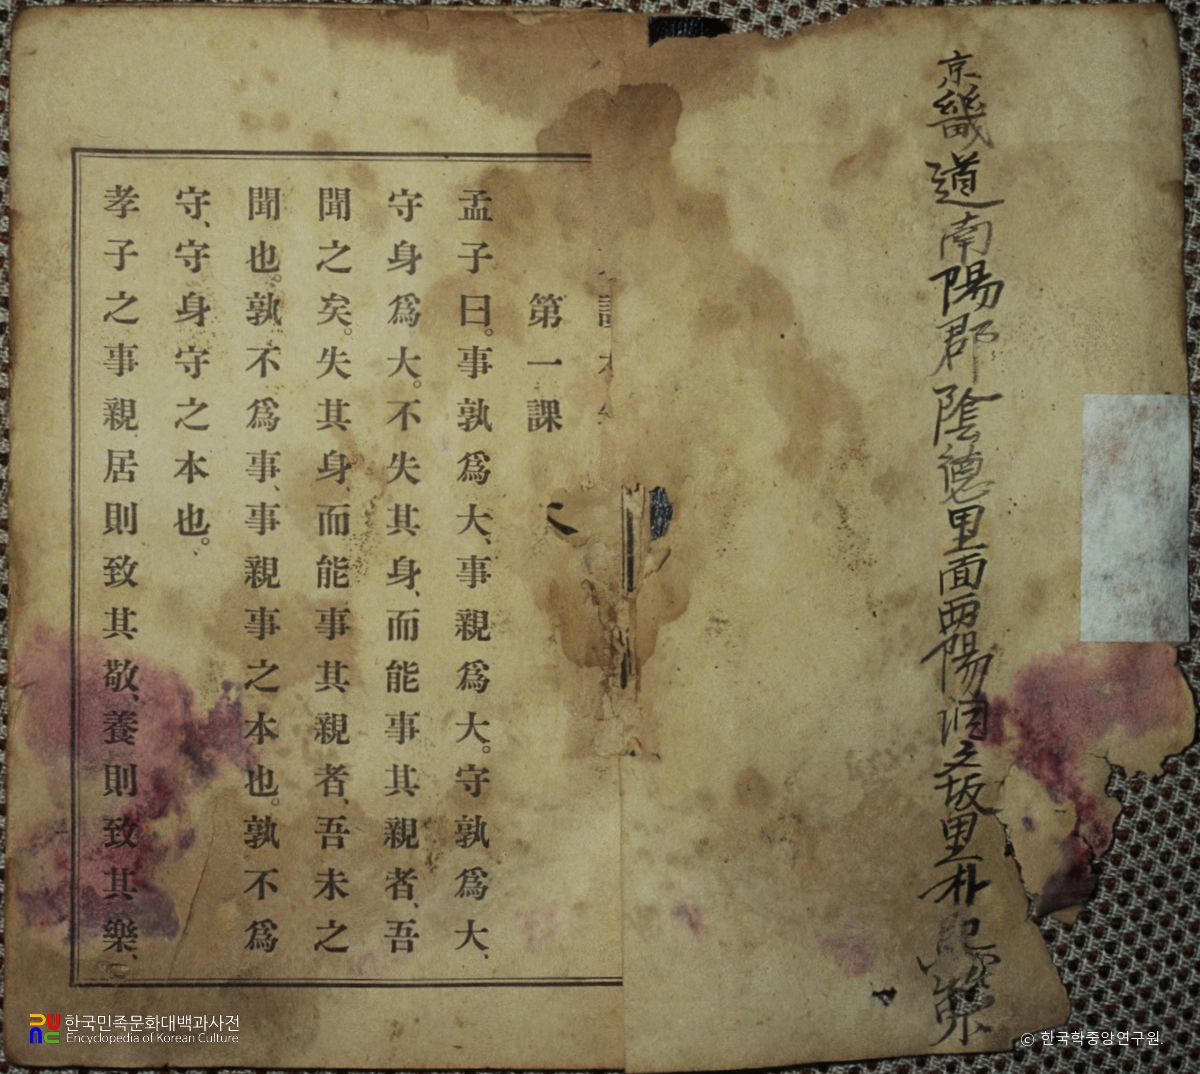 京畿道南陽郡陰德里面兩陽洞之坂里朴
第一課
孟子曰。事孰爲大、事親爲大。守孰爲大、
守身爲大。不失其身、而能事其親者、吾
聞之矣。失其身、而能事其親者、吾未之
聞也。孰不爲事、事親事之本也。孰不爲
守、守身守之本也。
孝子之事親、居則致其敬、養則致其樂、
한국민족문화대백과사전
Encyclopedia of Korean Culture
© 한국학중앙연구원.